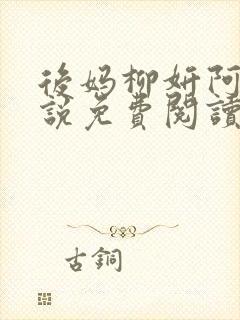 後媽柳妍阿
說免費閱讀
古銅